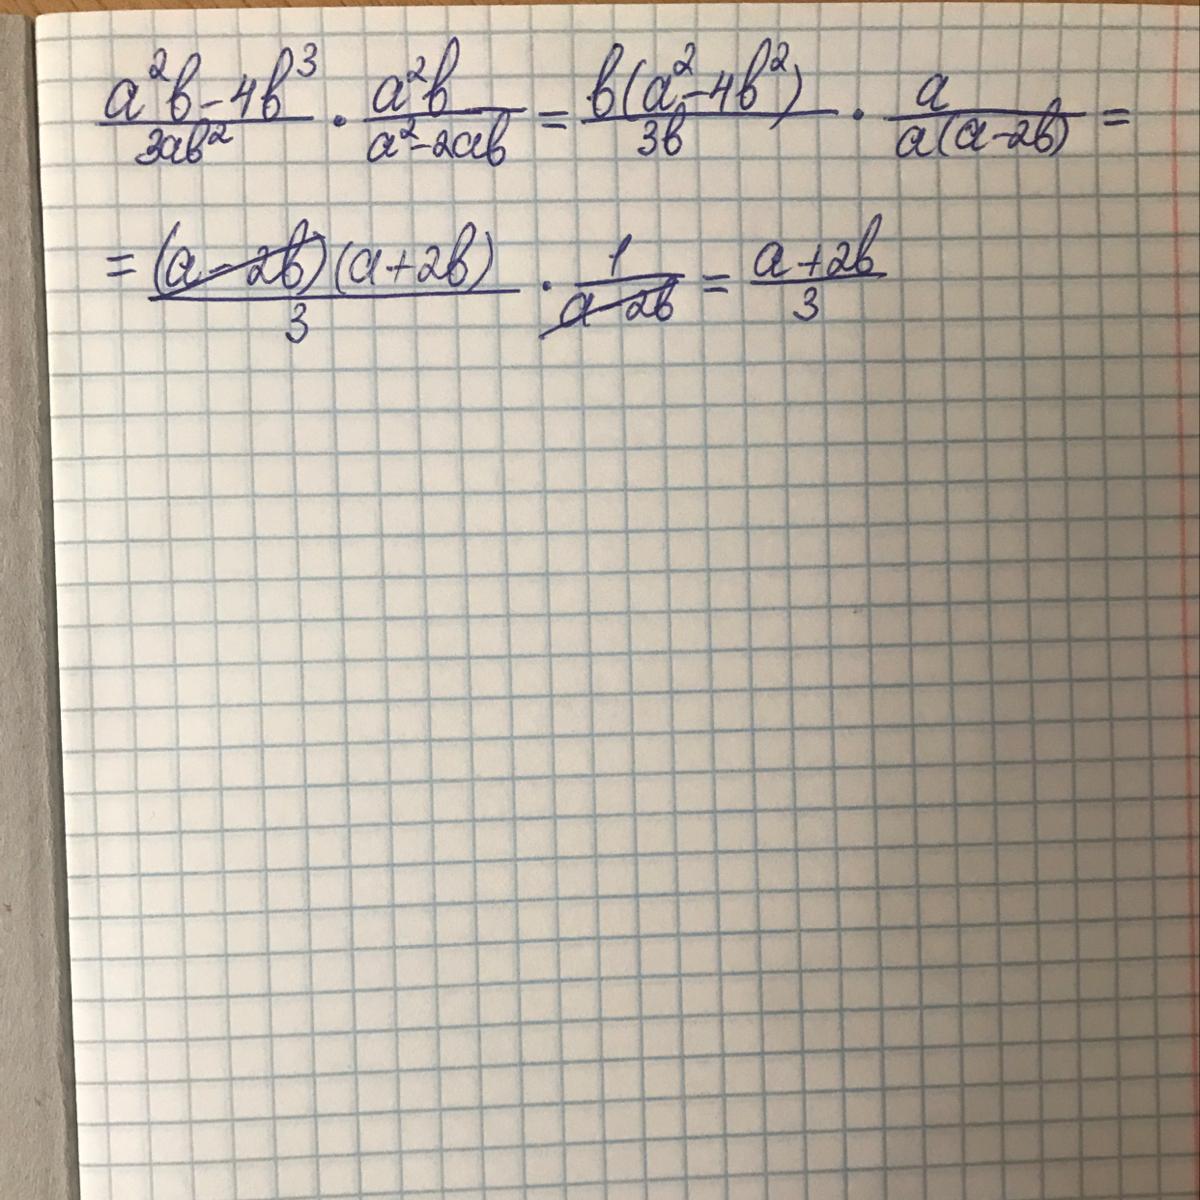 (a²b-4b³)/(3ab²) · (a²b)/(a²-2ab) = (b(a²-4b²))/(3b) · a/(a(a-2b)) =
= ((a-2b)(a+2b))/3 · 1/(a-2b) = (a+2b)/3